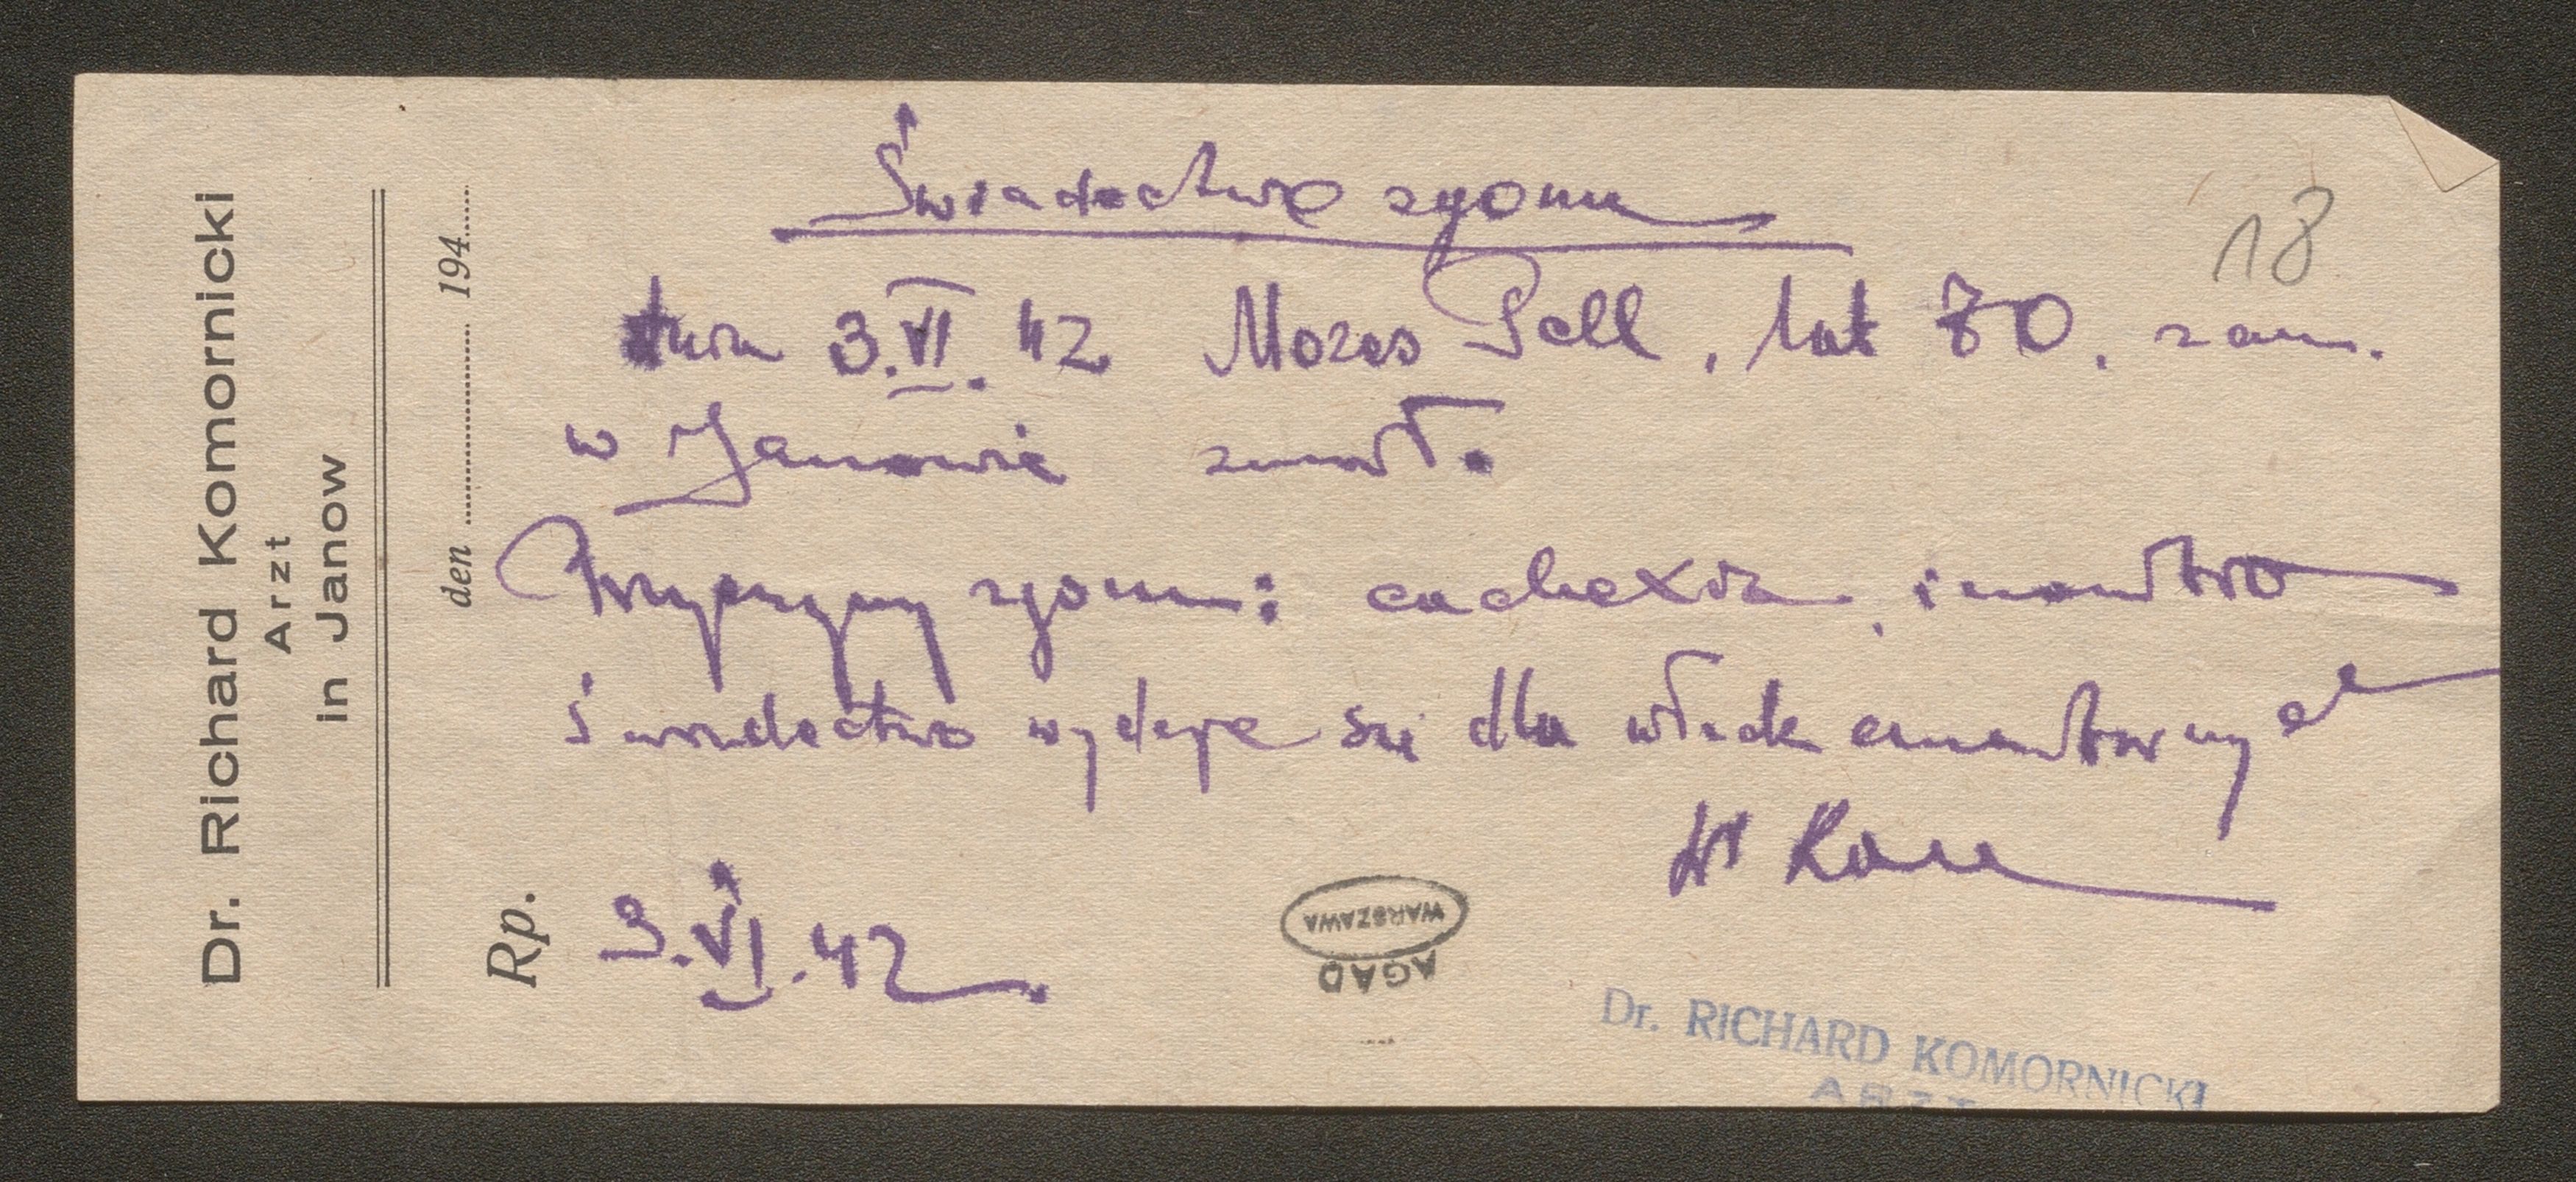 Dr. Richard Komornicki
Arzt
in Janow
den 194
Rp.
18
Świadectwo zgonu
dnia 3.VI.42 Mozes Pell, lat 70. zam.
w Janowie zmarł.
Przyczyny zgonu: cachexia,
świadectwo wydaje się dla władz cmentarnych
Dr Kom
3.VI.42.
WARSZAWA
AGAD
Dr. RICHARD KOMORNICKI
ARZT